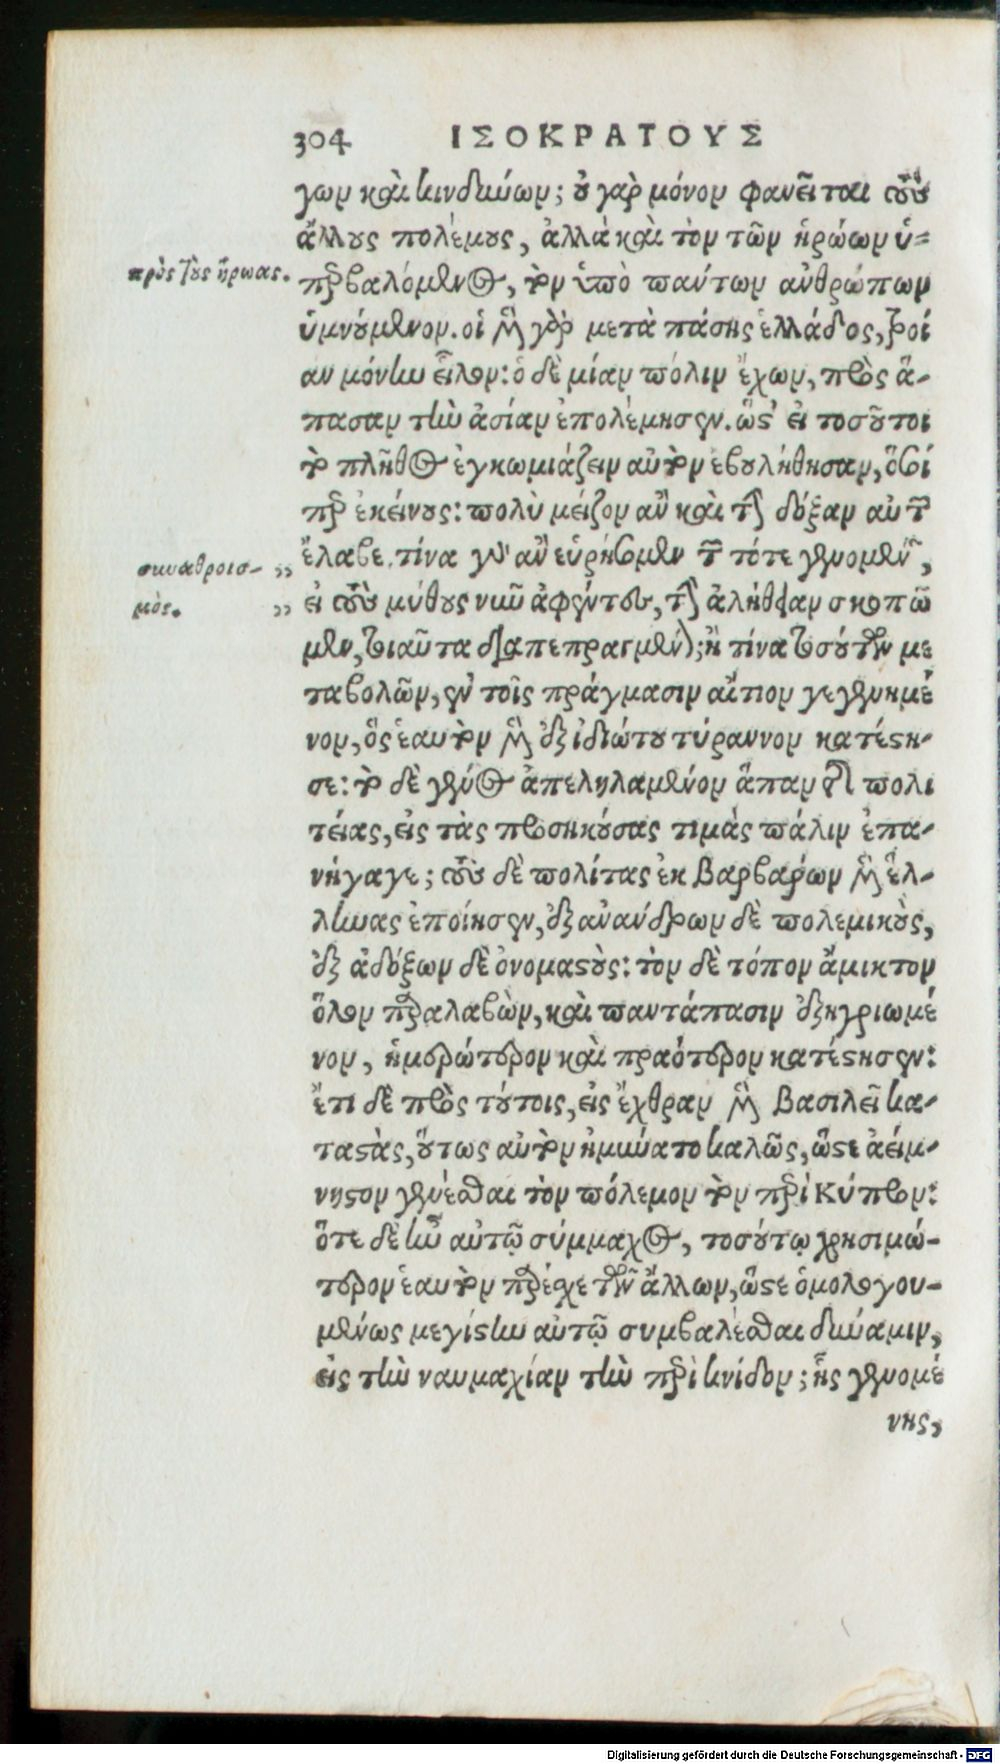 304 ΙΣΟΚΡΑΤΟΥΣ
γων καὶ κινδύνων; οὐ γὰρ μόνον φανεῖται τοὺς
ἄλλους πολέμους, ἀλλὰ καὶ τὸν τῶν ἡρώων ὑ-
πρὸς τοὺς ἥρωας.
περβαλόμενος, τὸν ὑπὸ πάντων ἀνθρώπων
ὑμνούμενον. οἱ μὲν γὰρ μετὰ πάσης ἑλλάδος, τροί
αν μόνην εἷλον: ὁ δὲ μίαν πόλιν ἔχων, πρὸς ἅ-
πασαν τὴν ἀσίαν ἐπολέμησεν. ὥστ' εἰ τοσοῦτοι
τὸ πλῆθος ἐγκωμιάζειν αὐτὸν ἐβουλήθησαν, ὅσοι
περ ἐκείνους: πολὺ μείζον ἂν καὶ τὴν δόξαν αὐτῶν
ἔλαβε. τίνα γὰρ ἂν εὑρήσομεν τῶν τότε γενομένων,
σιωαθροισ- ,,
εἰ τοὺς μύθους νῦν ἀφέντες, τὴν ἀλήθειαν σκοπῶ
μὸς. ,,
μεν, τοιαῦτα διαπεπραγμένον; ἢ τίνα τοσούτων με
ταβολῶν, ἐν τοῖς πράγμασιν αἴτιον γεγενημέ
νον, ὃς ἑαυτὸν μὲν ἐξ ἰδιώτου τύραννον κατέστη-
σε: τὸ δὲ γένος ἀπεληλαμένον ἅπαν τῆς πολι
τείας, εἰς τὰς προσηκούσας τιμὰς πάλιν ἐπα-
νήγαγε; τοὺς δὲ πολίτας ἐκ βαρβάρων μὲν ἕλ-
ληνας ἐποίησεν, ἐξ ἀνάνδρων δὲ πολεμικοὺς,
ἐξ ἀδόξων δὲ ὀνομαστούς: τὸν δὲ τόπον ἄμικτον
ὅλον παραλαβὼν, καὶ παντάπασιν ἐξηγριωμέ
νον, ἡμερώτερον καὶ πραότερον κατέστησεν:
ἔτι δὲ πρὸς τούτοις, εἰς ἔχθραν μὲν βασιλεῖ κα-
ταστὰς, οὕτως αὐτὸν ἠμύνατο καλῶς, ὥστε ἀείμ-
νηστον γενέσθαι τὸν πόλεμον τὸν περὶ Κύπρον:
ὅτε δὲ ἦν αὐτῷ σύμμαχος, τοσούτῳ χρησιμώ-
τερον ἑαυτὸν παρέσχε τῶν ἄλλων, ὥστε ὁμολογου-
μένως μεγίστην αὐτῷ συμβαλέσθαι δύναμιν,
εἰς τὴν ναυμαχίαν τὴν περὶ κνίδον; ἧς γενομέ
νης,
Digitalisierung gefördert durch die Deutsche Forschungsgemeinschaft - DFG